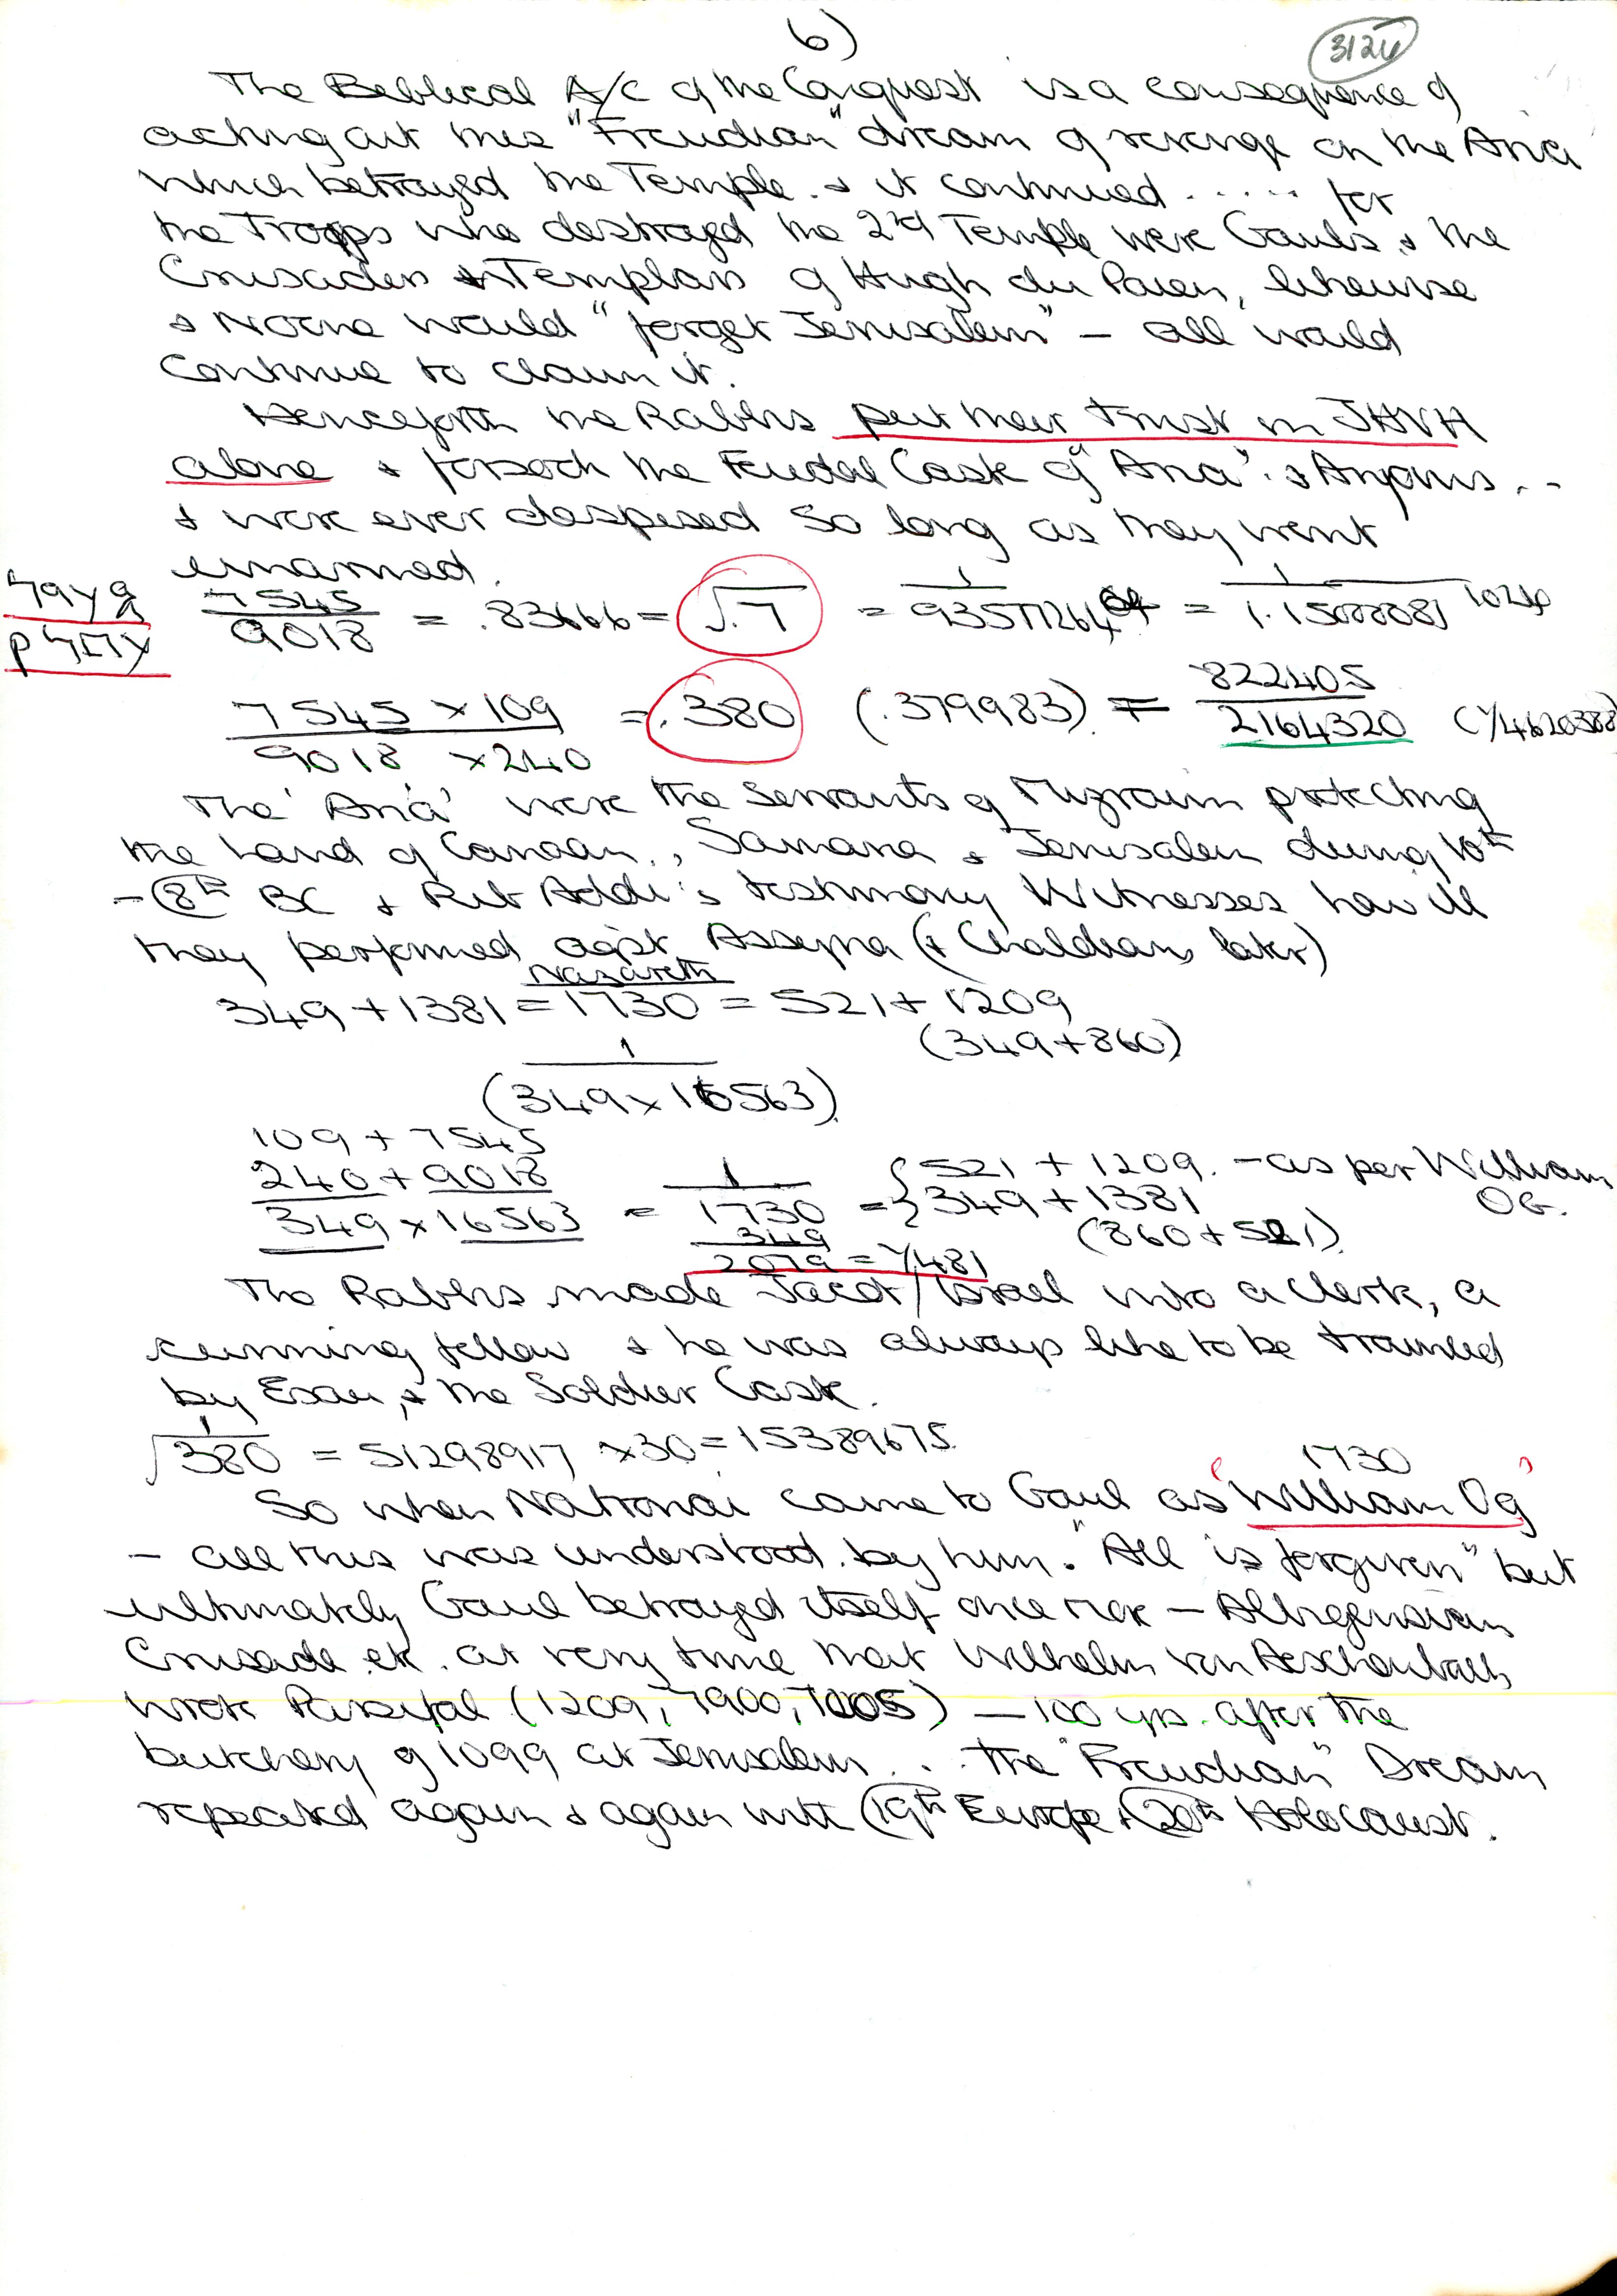 6)
3124
The Biblical A/C of the Conquest is a consequence of
acting out this "Freudian" dream of revenge on the Aria
which betrayed the Temple. & it continued ..... for
the Troops who destroyed the 2nd Temple were Gauls, & the
Crusaders & Templars of Hugh du Paien, likewise
& Noone would "forget Jerusalem" – all would
Continue to claim it.
Henceforth the Rabbis put their trust in JHVH
alone & forsook the Feudal Caste of "Aria". & Aryans ..
& were ever despised so long as they went
unarmed.
7545 / 9018 = .83666 = √.7 = 1 / 93577264 = 1 / 1.15000081 1024
7545 × 109 / 9018 × 240 = .380 (.379983) = 822405 / 2164320 (1/4620388)
The 'Aria' were the servants of Mizraim protecting
the Land of Canaan., Samaria & Jerusalem during 10th
– 8th BC & Rib Addi's testimony Witnesses how ill
they performed agst Assyria (& Chaldeans later)
Nazareth
349 + 1381 = 1730 = 521 + 1209
(349 + 860)
1
(349 × 16563)
109 + 7545
240 + 9018
349 × 16563 = 1 / 1730 = { 521 + 1209. – as per William OG.
349 + 1381
349
(860 + 521)
2079 = 1/481
The Rabbis made Jacob/Israel into a clerk, a
cunning fellow & he was always like to be trampled
by Esau, & the Soldier Caste.
√1/380 = 51298917 × 30 = 15389675.
1730
So when Natronai came to Gaul as 'William Og'
– all this was understood by him. "All is forgiven" but
ultimately Gaul betrayed itself once more – Albigensian
Crusade etc. at very time that Wilhelm von Aeschenbach
wrote Parsifal (1209, 7900, 7005) – 100 yrs. after the
butchery of 1099 at Jerusalem ... The "Freudian" Dream
repeated again & again with 19th Europe & 20th Holocaust.